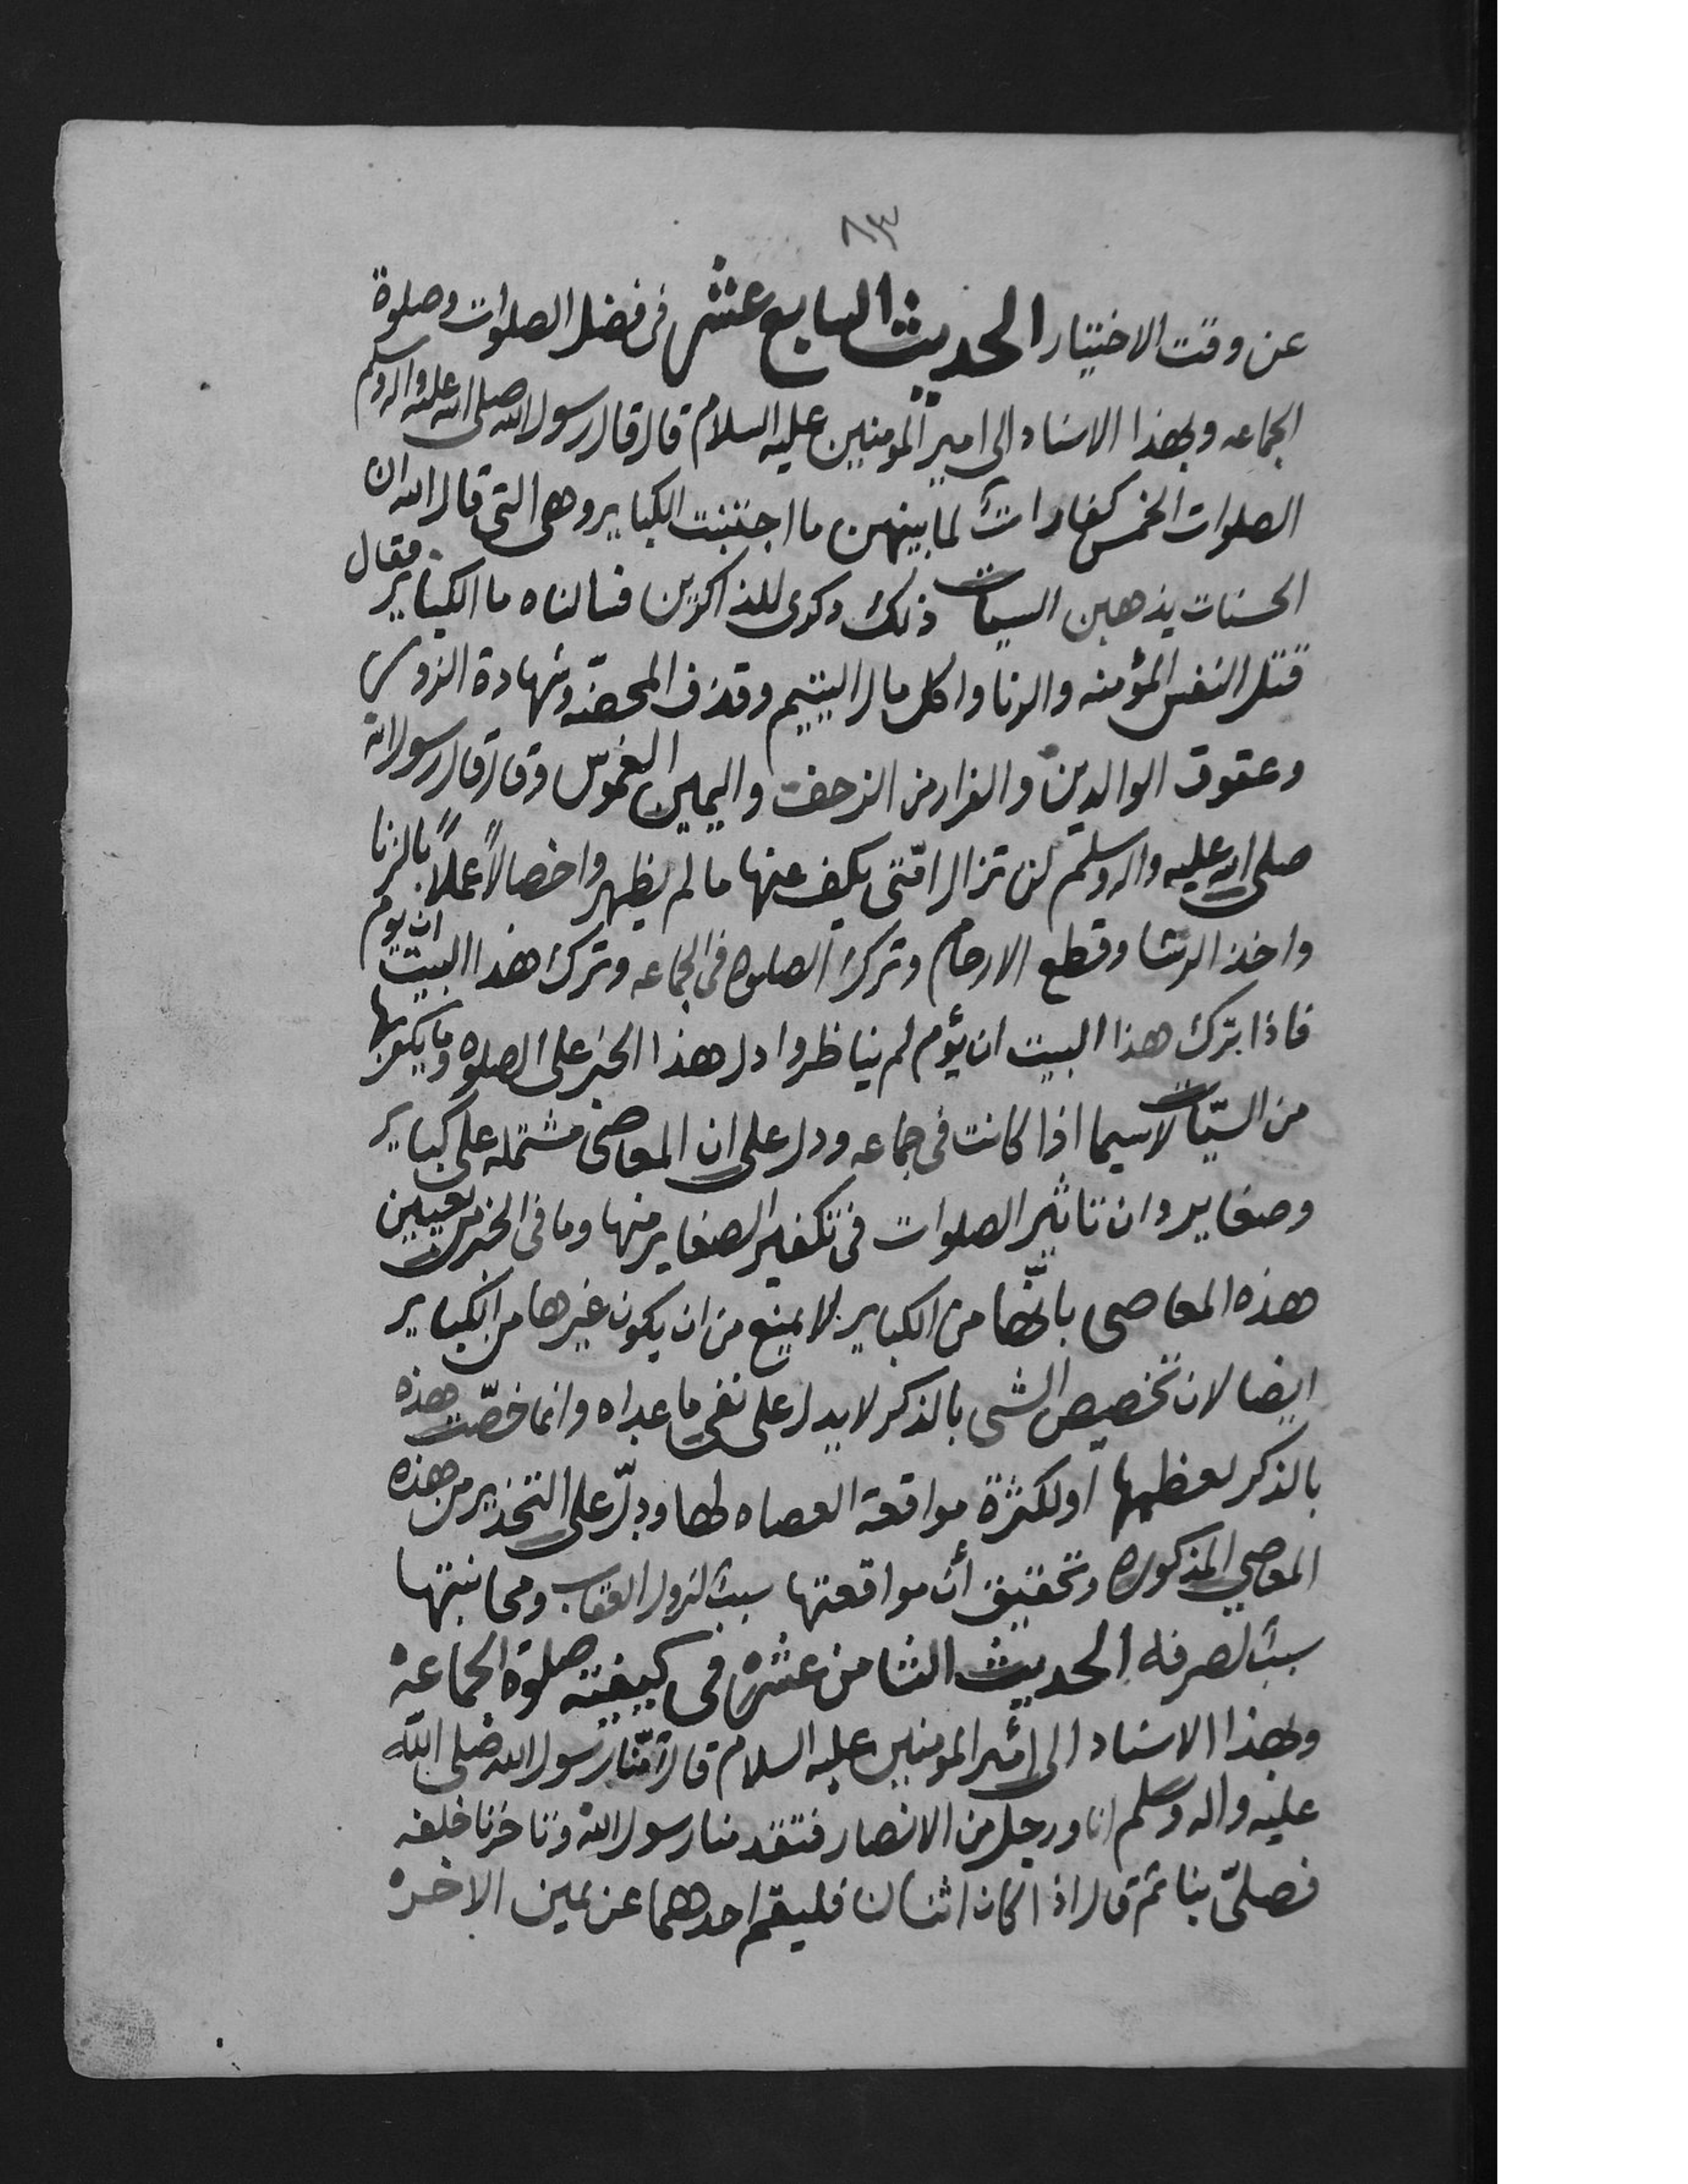 ٨٣
عن وقت الاختيار الحديث السابع عشر في فضل الصلوات وصلوة
الجماعه وبهذا الاسناد الى امير المومنين عليه السلام قال قال رسول الله صلى الله عليه واله وسلم
الصلوات الخمس كفارات لما بينهن ما اجتنبت الكباير وهى التى قال الله ان
الحسنات يذهبن السيات ذلك ذكرى للذاكرين فسالناه ما الكباير فقال
قتل النفس المؤمنه والزنا واكل مال اليتيم وقذف المحصنه وشهادة الزور
وعقوق الوالدين والفرار من الزحف واليمين الغموس وقال قال رسول الله
صلى الله عليه واله وسلم لن تزال امّتى يكف عنها ما لم يظهروا خصالاً عملاً بالزنا
واخذ الرشا وقطع الارحام وترك الصلوه فى الجماعه وترك هذا البيت ان يوم
فاذا ترك هذا البيت ان يؤم لم يناظروا دل هذا الخبر على الصلوه وما يكفر بها
من السيّات لاسيما اذا كانت فى جماعه ودل على ان المعاصى مشتمله على كباير
وصغاير وان تاثير الصلوات فى تكفير الصغاير منها وما فى الخبر من تعيين
هذه المعاصى بانّها من الكباير لا يمنع من ان يكون غيرها من الكباير
ايضا لان تخصيص الشى بالذكر لا يدل على نفى ما عداه وانما خصّت هذه
بالذكر لعظمها او لكثرة مواقعة العصاه لها ودلّ على التحذير من هذه
المعاصي المذكوره وتحقيق أن مواقعتها سبب لنزول العقاب ومجانبتها
سبب لصرفه الحديث الثامن عشر فى كيفية صلوة الجماعة
وبهذا الاسناد الى امير المومنين عليه السلام قال امّنا رسول الله صلى الله
عليه واله وسلم انا ورجل من الانصار فتقدمنا رسول الله وتاخرنا خلفه
فصلىّ بنا ثم قال اذا كان اثنان فليقم احدهما عن يمين الاخر